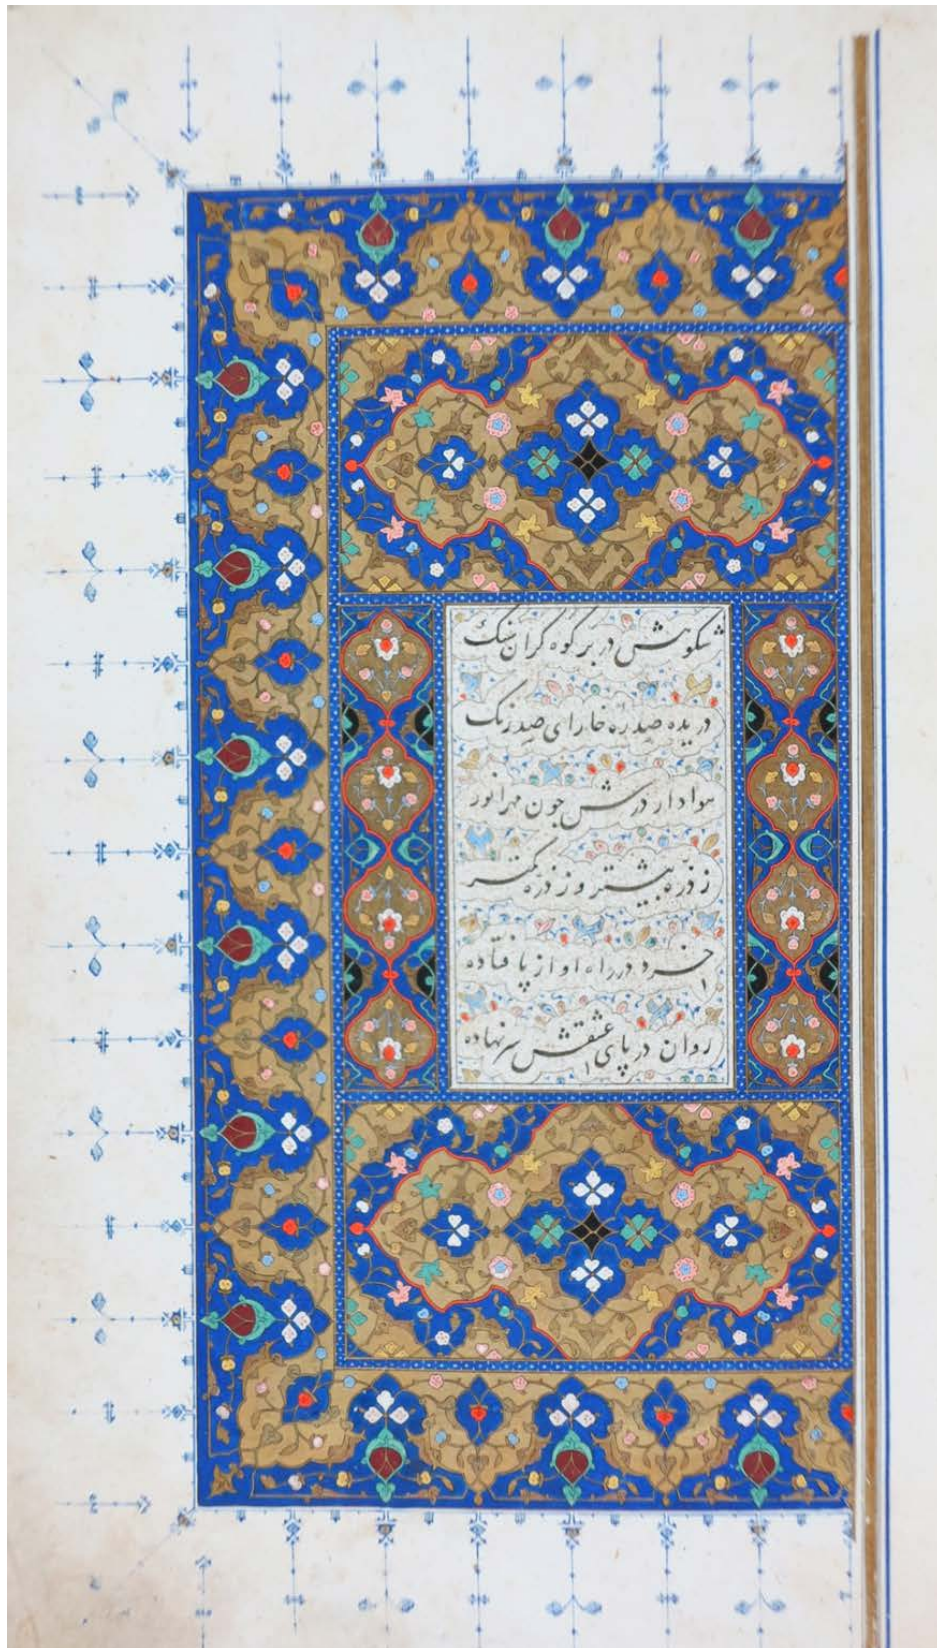 شکوهش در بر کوه گران سنک
دریده صد زره خارای صد رنک
هوادار درش جون مهر انور
ز ذره بیشتر و ز ذره کمتر
خرد در راه او از پا فتاده
روان در پای عشقش سر نهاده